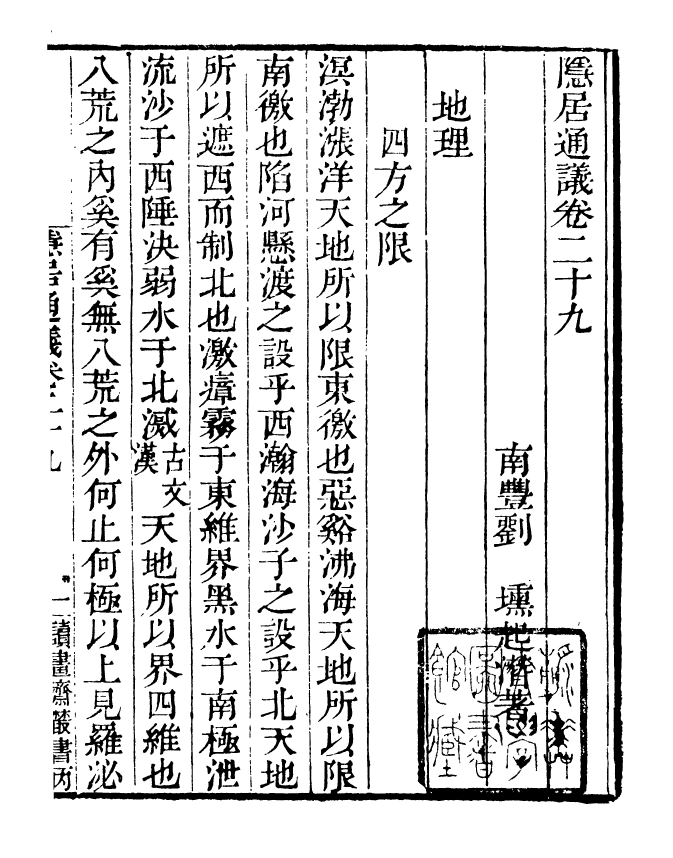 隱居通議卷二十九
南豐劉 壎起潛著
地理
四方之限
溟渤漲洋天地所以限東徼也惡谿沸海天地所以限
南徼也陷河懸渡之設乎西瀚海沙子之設乎北天地
所以遮西而制北也激瘴霧于東維界黑水于南極泄
流沙于西陲決弱水于北滅古文漢天地所以界四維也
八荒之內奚有奚無八荒之外何止何極以上見羅泌
隱居通議卷二十九 一 讀畫齋叢書丙